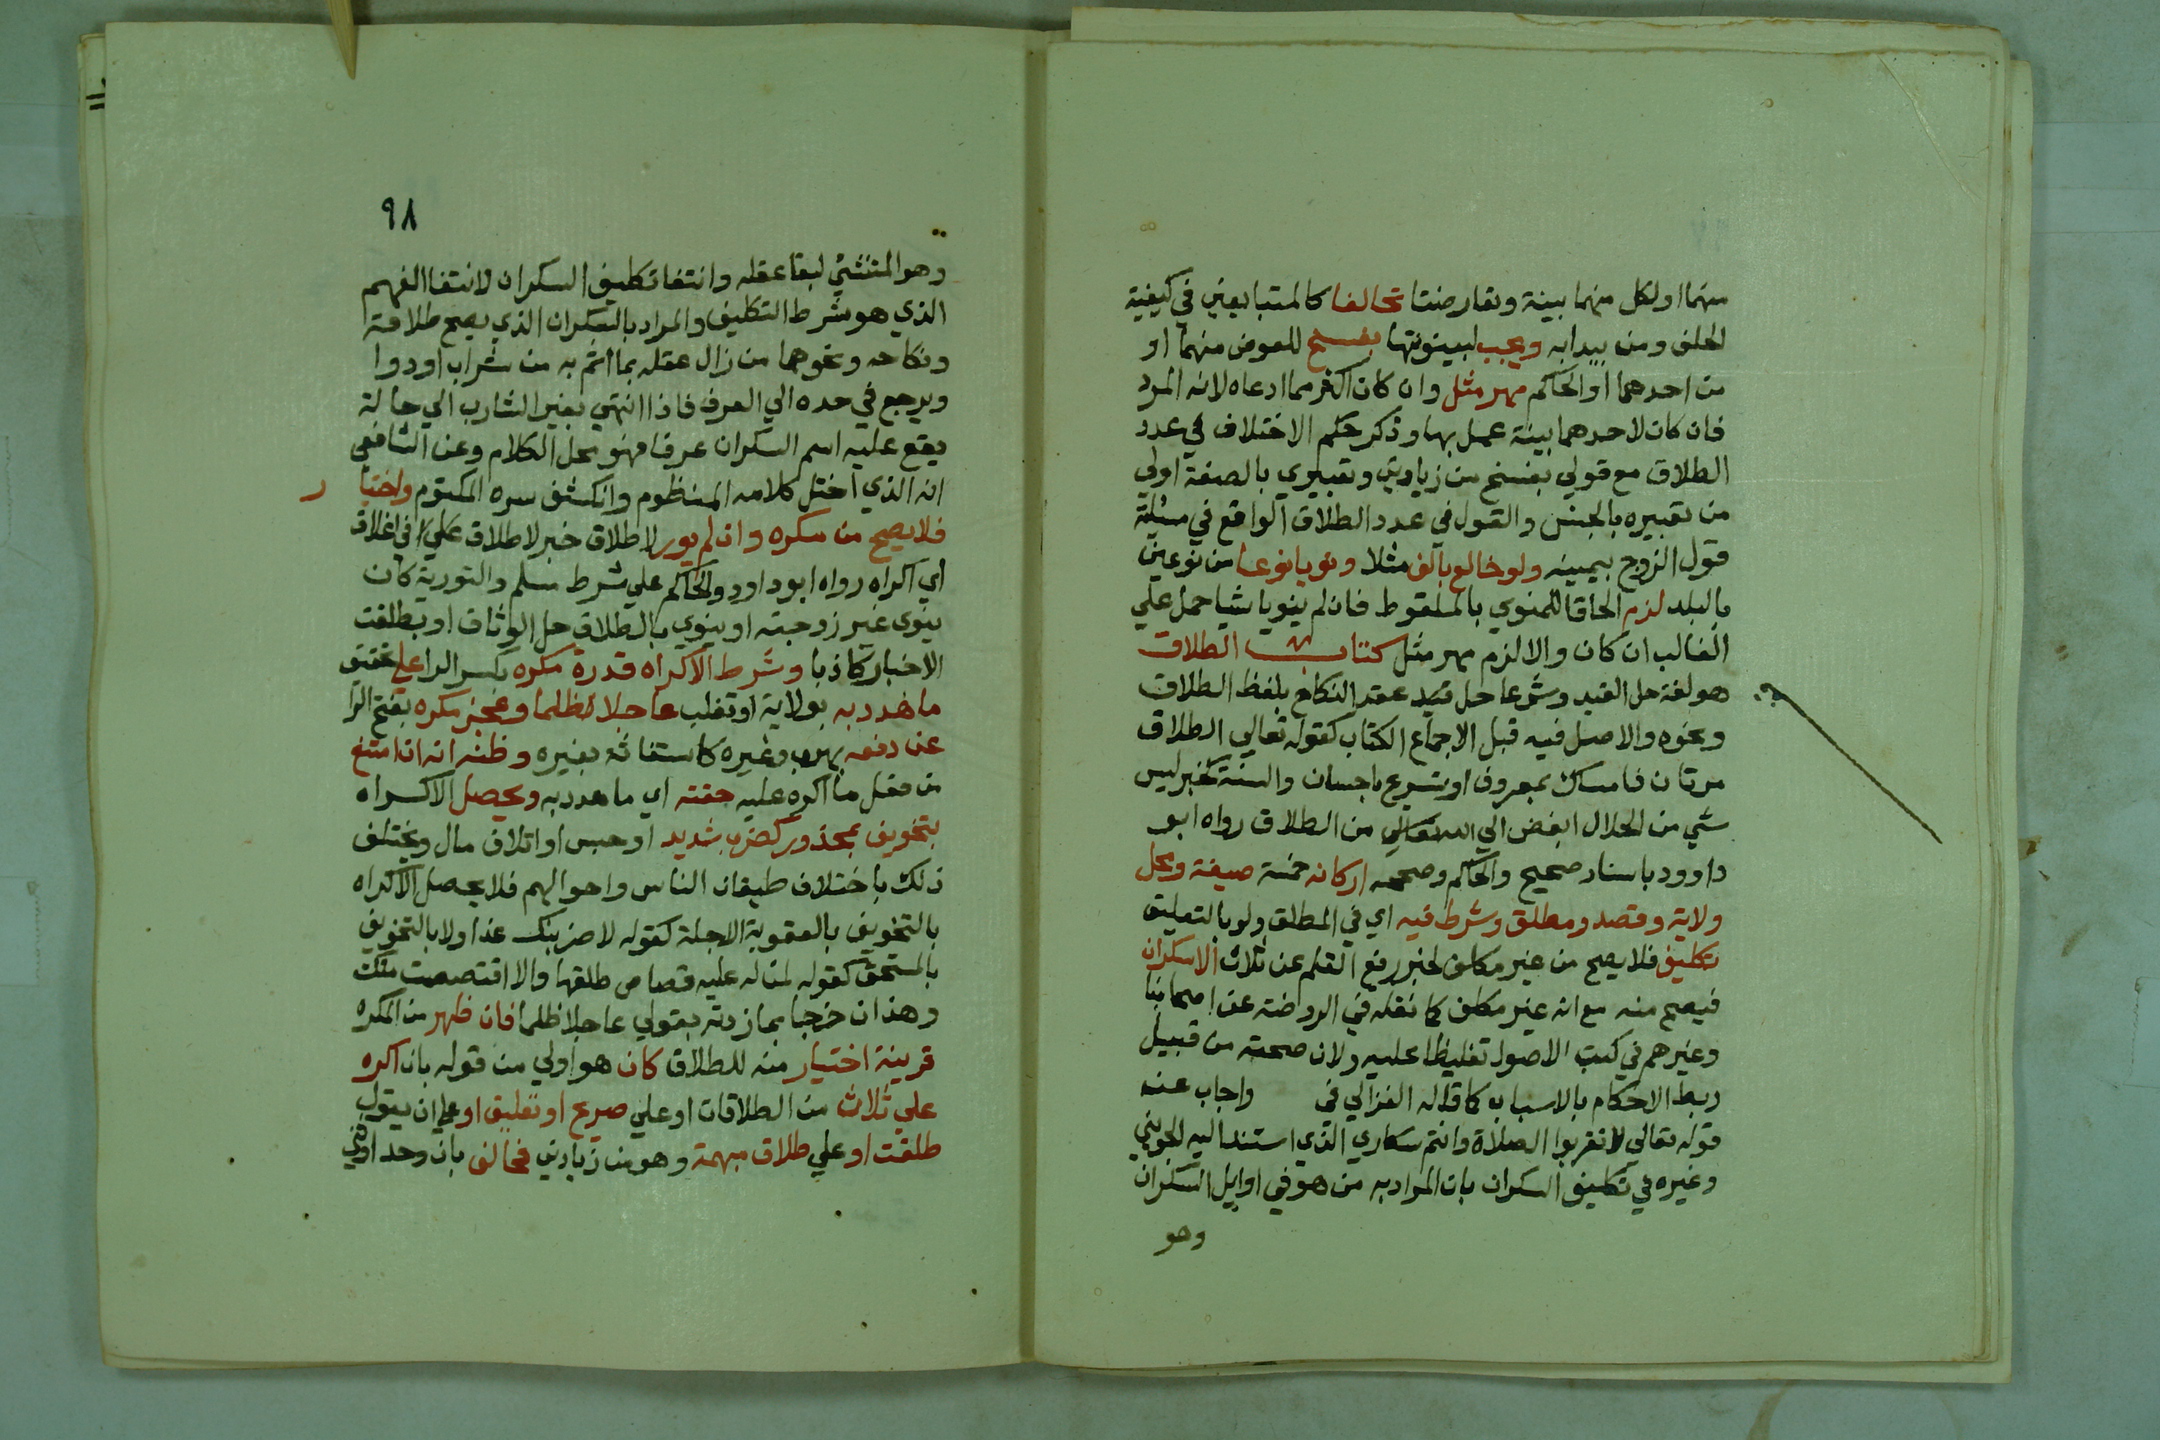 منهما اولكل منهما بينة وتعارضتا تحالفا كالمتبايعين في كيفية
الحلف ومن يبدا به ويجب لبينونتها بفسخ للعوض منهما او
من احدهما او الحاكم مهر مثل وان كان اكثر مما ادعاه لانه المرد
فان كان لاحدهما بينة عمل بها وذكر حكم الاختلاف في عدد
الطلاق مع قولي بفسخ من زيادتي وتعبيري بالصفة اولي
من تعبيره بالجنس والقول في عدد الطلاق الواقع في مسئلة
قول الزوج بيمينه ولو خالع بالف مثلا ونويا نوعا من نوعين
بالبلد لزم الحاقا للمنوي بالملفوظ فان لم ينويا شيا حمل علي
الغالب ان كان والا لزم مهر مثل كتاب الطلاق
هو لغة حل القيد وشرعا حل قيد عقد النكاح بلفظ الطلاق
ونحوه والاصل فيه قبل الاجماع الكتاب كقوله تعالي الطلاق
مرتان فامساك بمعروف او تسريح باحسان والسنة كخبر ليس
شي من الحلال ابغض الي الله تعالي من الطلاق رواه ابو
داوود باسناد صحيح والحاكم وصححه اركانه خمسة صيغة ومحل
ولاية وقصد ومطلق وشرط فيه اي في المطلق ولو بالتعليق
تكليف فلا يصح من غير مكلف لخبر رفع القلم عن ثلاث الا سكران
فيصح منه مع انه غير مكلف كما نقله في الروضة عن اصحابنا
وغيرهم في كتب الاصول تغليظا عليه ولان صحته من قبيل
ربط الاحكام بالاسباب كما قاله الغزالي في واجاب عنه
قوله تعالي لا تقربوا الصلاة وانتم سكاري الذي استند اليه الجويني
وغيره في تكليف السكران بان المراد به من هو في اوايل السكران
وهو
٩٨
وهو المنتشي لبقا عقله وانتفا تكليف السكران لانتفا الفهم
الذي هو شرط التكليف والمراد بالسكران الذي يصح طلاقه
ونكاحه ونحوهما من زال عقله بما اثم به من شراب او دوا
ويرجع في حده الي العرف فاذا انتهي تغير الشارب الي حالة
يقع عليه اسم السكران عرفا فهو محل الكلام وعن الشافعي
انه الذي اختل كلامه المنظوم وانكشف سره المكتوم واختيا ر
فلا يصح من مكره وان لم يور لا طلاق خبر لا طلاق في اغلاق
اي اكراه رواه ابو داود والحاكم علي شرط مسلم والتورية كان
ينوي غير زوجته او ينوي بالطلاق حل الوثاق او بطلقت
الاخبار كاذبا وشرط الاكراه قدرة مكره بكسر الرا علي تحقيق
ما هدد به بولاية او تغلب عاجلا ظلما وعجز مكره بفتح الرا
عن دفعه بهرب وغيره كاستغاثة بغيره وظنه انه ان امتنع
من فعل ما اكره عليه حققه اي ما هدد به ويحصل الاكراه
بتخويف بمحذور كضرب شديد او حبس او اتلاف مال ويختلف
ذلك باختلاف طبقات الناس واحوالهم فلا يحصل الاكراه
بالتخويف بالعقوبة الاجلة كقوله لاضربنك غدا ولا بالتخويف
بالمستحق كقوله لمن له عليه قصاص طلقها والا اقتصصت منك
وهذان خرجا بما زدته بقولي عاجلا ظلما فان ظهر من المكره
قرينة اختيار منه للطلاق كان هو اولي من قوله بان اكره
علي ثلاث من الطلاقات او علي صريح او تعليق او علي ان يقول
طلقت او علي طلاق مبهمة وهو من زيادتي فخالف بان وحد او ثني